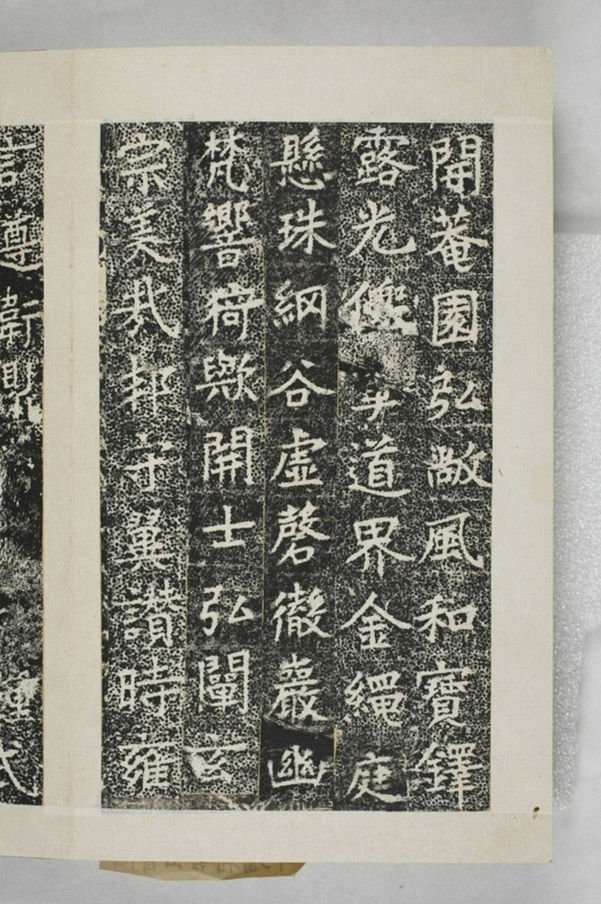 開菴園弘敞風和寶鐸
露光僊掌道界金繩庭
懸珠網谷虛磬徹巖幽
梵響猗歟開士弘闡玄
宗美哉邦守翼讚時雍